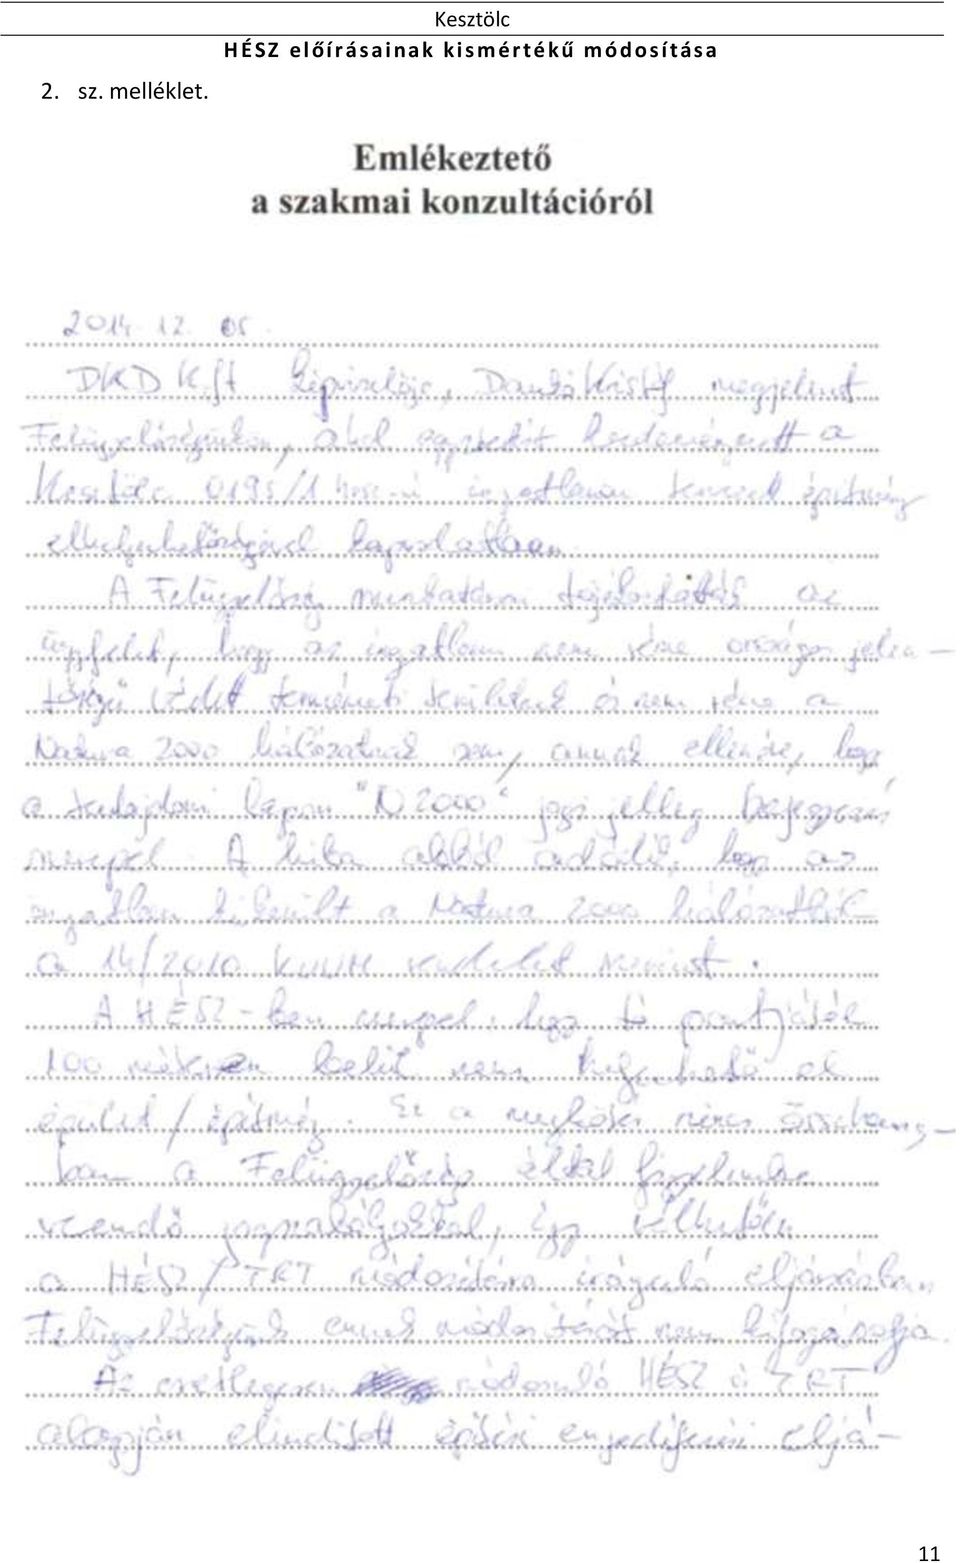 Kesztölc
HÉSZ előírásainak kismértékű módosítása
2. sz. melléklet.
Emlékeztető
a szakmai konzultációról
2014. 12. 05.
DKD Kft képviselője, Kristóf megjelent
Felügyelőségünkön, ahol egyeztetést kezdeményezett a
Kesztölc 0195/1 hrsz-ú ingatlanon tervezett építmény
elhelyezhetőségével kapcsolatban.
A Felügyelőség munkatársai tájékoztatták az
ügyfelet, hogy az ingatlan nem része országos jelen-
tőségű védett természeti területnek és nem része a
Natura 2000 hálózatnak sem, annak ellenére, hogy
a tulajdoni lapon "N2000" jogi jelleg bejegyzés
szerepel. A hiba abból adódik, hogy az
ingatlan kikerült a Natura 2000 hálózatból
a 14/2010 KvVM rendelet szerint.
A HÉSZ-ben szerepel, hogy tó partjától
100 méteren belül nem helyezhető el
épület/építmény. Ez a megkötés nincs összhang-
ban a Felügyelőség által figyelembe
veendő jogszabályokkal, így vélhetően
a HÉSZ/TRT módosítására irányuló eljárásban
Felügyelőségünk ennek módosítását nem kifogásolja.
Az esetlegesen módosuló HÉSZ és TRT
alapján elindított építési engedélyezési eljá-
11